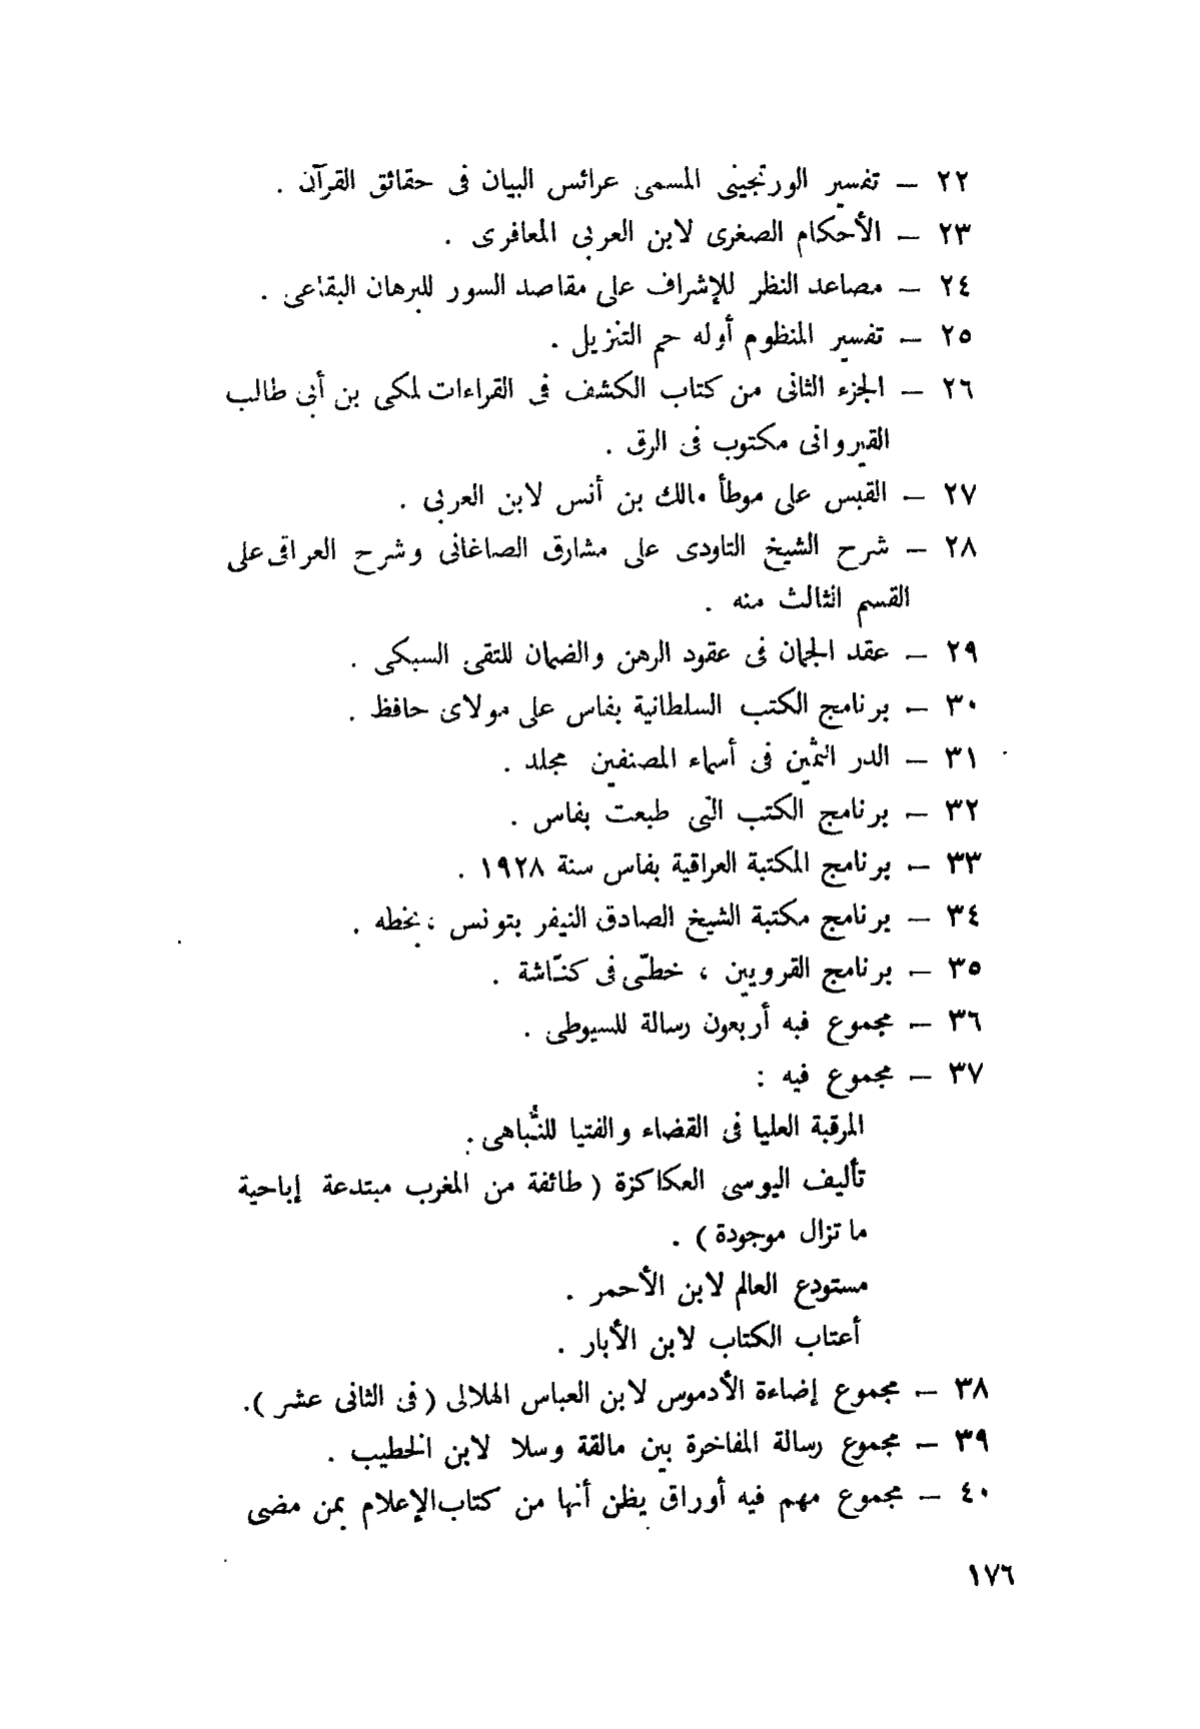 ٢٢ — تفسير الورتجيني المسمى عرائس البيان فى حقائق القرآن .
٢٣ — الأحكام الصغرى لابن العربى المعافرى .
٢٤ — مصاعد النظر للإشراف على مقاصد السور للبرهان البقاعى .
٢٥ — تفسير المنظوم أوله حم التنزيل .
٢٦ — الجزء الثانى من كتاب الكشف فى القراءات لمكى بن أبى طالب
القيروانى مكتوب فى الرق .
٢٧ — القبس على موطأ مالك بن أنس لابن العربى .
٢٨ — شرح الشيخ التاودى على مشارق الصاغانى وشرح العراقى على
القسم الثالث منه .
٢٩ — عقد الجمان فى عقود الرهن والضمان للتقى السبكى .
٣٠ — برنامج الكتب السلطانية بفاس على مولاى حافظ .
٣١ — الدر الثمين فى أسماء المصنفين مجلد .
٣٢ — برنامج الكتب التى طبعت بفاس .
٣٣ — برنامج المكتبة العراقية بفاس سنة ١٩٢٨ .
٣٤ — برنامج مكتبة الشيخ الصادق النيفر بتونس ، بخطه .
٣٥ — برنامج القرويين ، خطّى فى كنّاشة .
٣٦ — مجموع فيه أربعون رسالة للسيوطى .
٣٧ — مجموع فيه :
المرقبة العليا فى القضاء والفتيا للنُّباهى .
تأليف اليوسى العكاكزة ( طائفة من المغرب مبتدعة إباحية
ما تزال موجودة ) .
مستودع العالم لابن الأحمر .
أعتاب الكتاب لابن الأبار .
٣٨ — مجموع إضاءة الأدموس لابن العباس الهلالى ( فى الثانى عشر ) .
٣٩ — مجموع رسالة المفاخرة بين مالقة وسلا لابن الخطيب .
٤٠ — مجموع مهم فيه أوراق يظن أنها من كتاب الإعلام بمن مضى
١٧٦